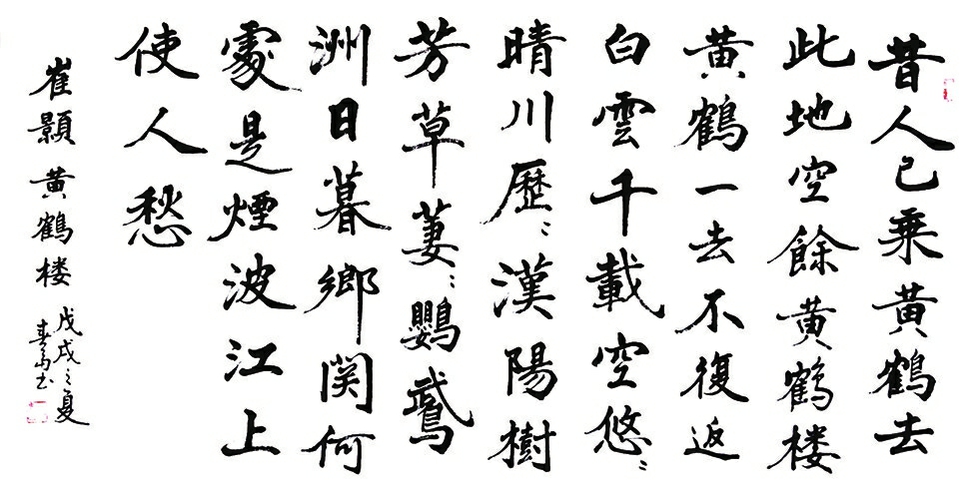 昔人已乘黄鶴去
此地空餘黄鶴楼
黄鶴一去不復返
白雲千載空悠〻
晴川歷〻漢陽樹
芳草萋〻鸚鵡
洲日暮鄉関何
處是煙波江上
使人愁
崔顥 黄鶴楼
戊戌之夏